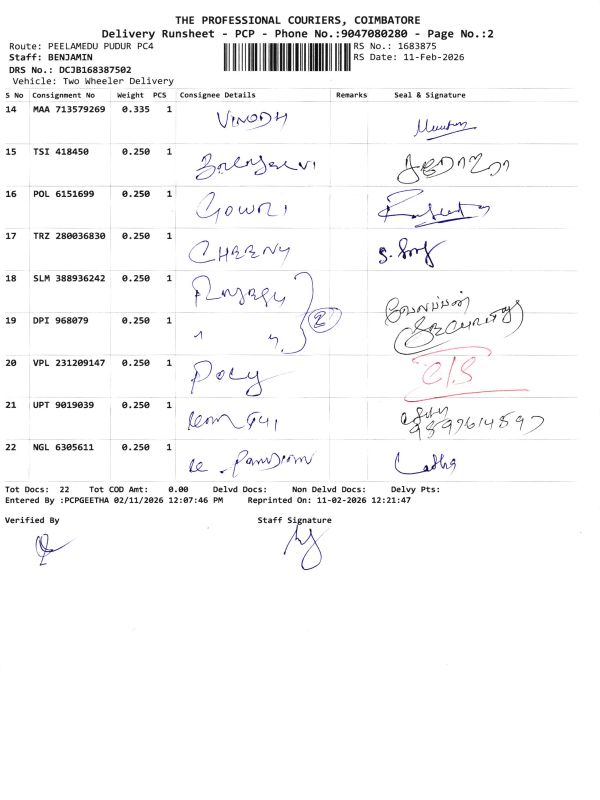 THE PROFESSIONAL COURIERS, COIMBATORE
Delivery Runsheet - PCP - Phone No.:9047080280 - Page No.:2
Route: PEELAMEDU PUDUR PC4 RS No.: 1683875
Staff: BENJAMIN RS Date: 11-Feb-2026
DRS No.: DCJB168387502
Vehicle: Two Wheeler Delivery
S No Consignment No Weight PCS Consignee Details Remarks Seal & Signature
14 MAA 713579269 0.335 1 VINODH
15 TSI 418450 0.250 1
16 POL 6151699 0.250 1 GOWRI
17 TRZ 280036830 0.250 1 CHEENY
18 SLM 388936242 0.250 1
19 DPI 968079 0.250 1 " ". 2 Security
20 VPL 231209147 0.250 1 C/S
21 UPT 9019039 0.250 1
22 NGL 6305611 0.250 1
Tot Docs: 22 Tot COD Amt: 0.00 Delvd Docs: Non Delvd Docs: Delvy Pts:
Entered By :PCPGEETHA 02/11/2026 12:07:46 PM Reprinted On: 11-02-2026 12:21:47
Verified By Staff Signature